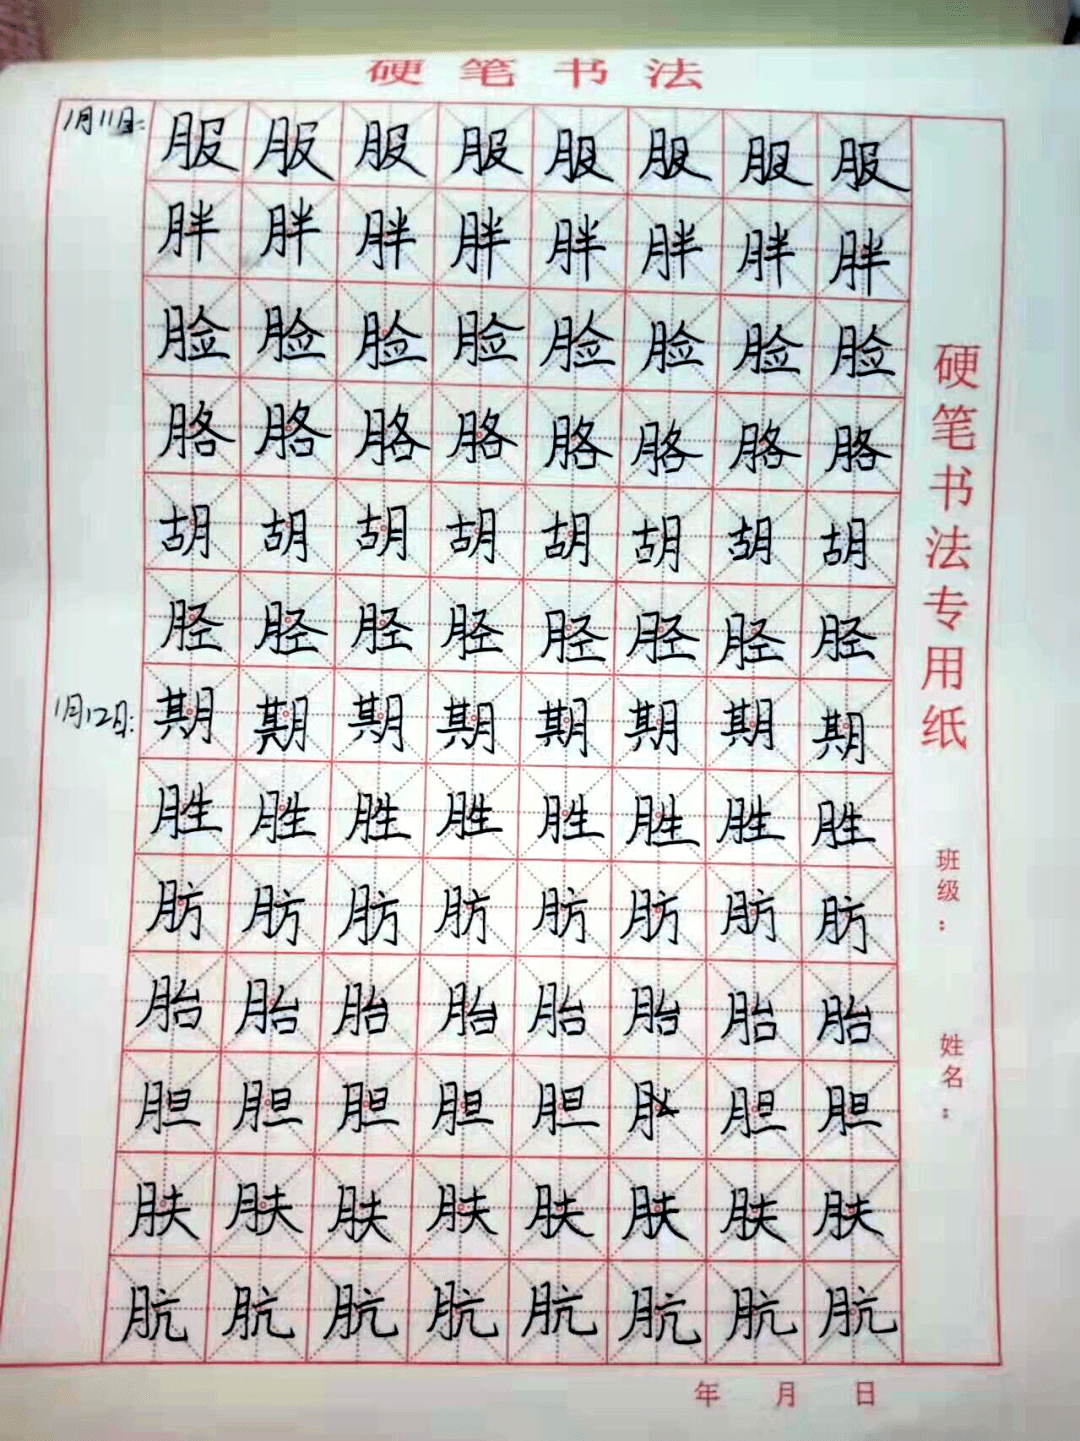 硬笔书法
1月11日:
服服服服服服服服
胖胖胖胖胖胖胖胖
脸脸脸脸脸脸脸脸
胳胳胳胳胳胳胳胳
胡胡胡胡胡胡胡胡
胫胫胫胫胫胫胫胫
1月12日:
期期期期期期期期
胜胜胜胜胜胜胜胜
肪肪肪肪肪肪肪肪
胎胎胎胎胎胎胎胎
胆胆胆胆胆胆胆
肤肤肤肤肤肤肤肤
肮肮肮肮肮肮肮肮
硬笔书法专用纸
班级:
姓名:
年 月 日